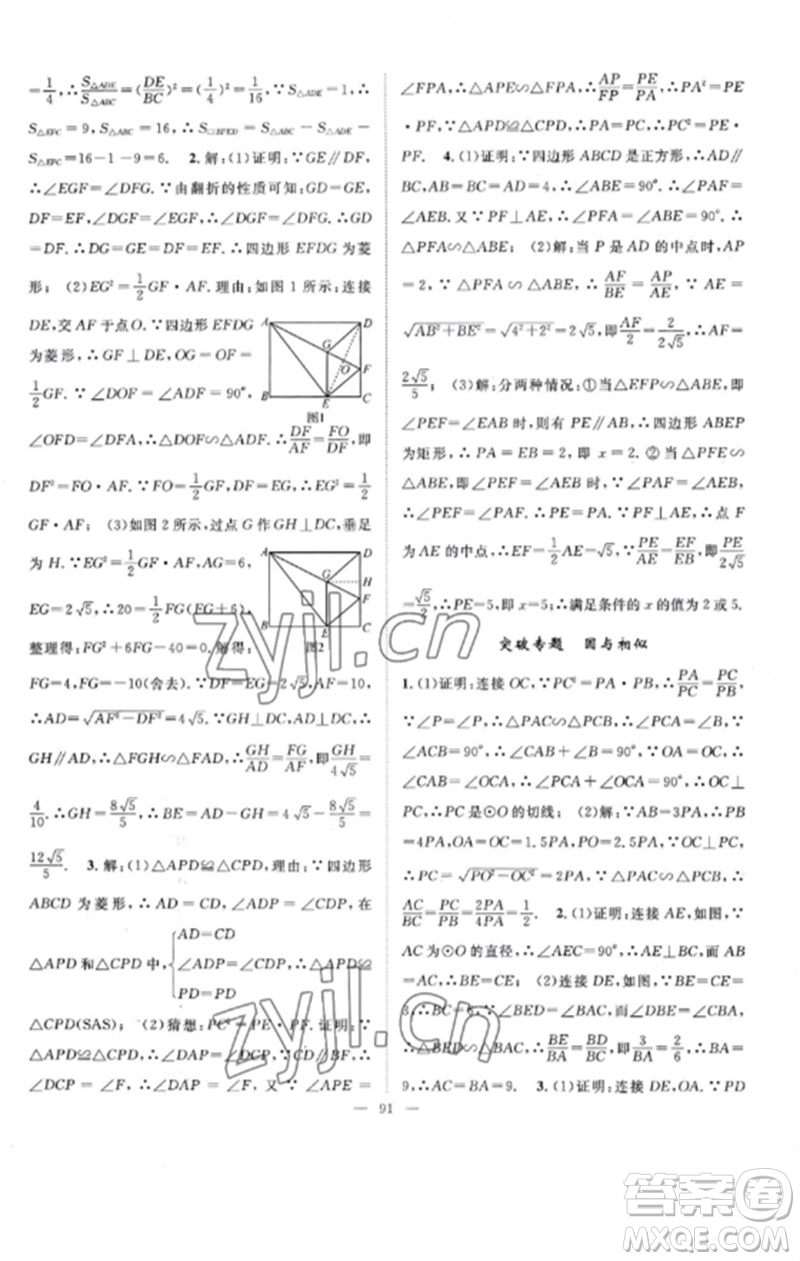 =1/4,∴S△ADE/S△ABC=(DE/BC)²=(1/4)²=1/16,∵S△ADE=1,∴
S△EFC=9,S△ABC=16,∴S▱BFED=S△ABC−S△ADE−
S△EFC=16−1−9=6. 2.解:(1)证明:∵GE∥DF,
∴∠EGF=∠DFG.∵由翻折的性质可知:GD=GE,
DF=EF,∠DGF=∠EGF,∴∠DGF=∠DFG.∴GD
=DF.∴DG=GE=DF=EF.∴四边形EFDG为菱
形;(2)EG²=1/2GF·AF.理由:如图1所示:连接
DE,交AF于点O.∵四边形EFDG
为菱形,∴GF⊥DE,OG=OF=
1/2GF.∵∠DOF=∠ADF=90°,
A D G O F B E C
图1
∠OFD=∠DFA,∴△DOF∽△ADF.∴DF/AF=FO/DF,即
DF²=FO·AF.∵FO=1/2GF,DF=EG,∴EG²=1/2
GF·AF;(3)如图2所示,过点G作GH⊥DC,垂足
为H.∵EG²=1/2GF·AF,AG=6,
EG=2√5,∴20=1/2FG(EG+6),
整理得:FG²+6FG−40=0.解得:
A D G H F B E C
图2
FG=4,FG=−10(舍去).∵DF=GE=2√5,AF=10,
∴AD=√(AF²−DF²)=4√5.∵GH⊥DC,AD⊥DC,∴
GH∥AD,∴△FGH∽△FAD,∴GH/AD=FG/AF,即GH/4√5=
4/10.∴GH=8√5/5,∴BE=AD−GH=4√5−8√5/5=
12√5/5. 3.解:(1)△APD≌△CPD,理由:∵四边形
ABCD为菱形,∴AD=CD,∠ADP=∠CDP,在
△APD和△CPD中,{AD=CD ∠ADP=∠CDP,∴△APD≌ PD=PD
△CPD(SAS);(2)猜想:PC²=PE·PF.证明:∵
△APD≌△CPD,∴∠DAP=∠DCP,∵CD∥AB,
∴∠DCP=∠F,∴∠DAP=∠F,又∵∠APE=
∠FPA,∴△APE∽△FPA,∴AP/FP=PE/PA,∴PA²=PE
·PF,∵△APD≌△CPD,∴PA=PC,∴PC²=PE·
PF. 4.(1)证明:∵四边形ABCD是正方形,∴AD∥
BC,AB=BC=AD=4,∠ABE=90°.∴∠PAF=
∠AEB.又∵PF⊥AE,∴∠PFA=∠ABE=90°,∴
△PFA∽△ABE;(2)解:当P是AD的中点时,AP
=2,∵△PFA∽△ABE,∴AF/BE=AP/AE,∴AE=
√(AB²+BE²)=√(4²+2²)=2√5,∴AF/2=2/2√5,∴AF=
2√5/5;(3)解:分两种情况:①当△EFP∽△ABE,即
∠PEF=∠EAB时,则有PE∥AB,∴四边形ABEP
为矩形,∴PA=EB=2,即x=2.②当△PFE∽
△ABE,即∠PEF=∠AEB时,∵∠PAF=∠AEB,
∴∠PEF=∠PAF,∴PE=PA,∵PF⊥AE,∴点F
为AE的中点,∴EF=1/2AE=√5,∵PE/AE=EF/EB,即PE/2√5=
√5/2,∴PE=5,即x=5;∴满足条件的x的值为2或5.
突破专题 圆与相似
1.(1)证明:连接OC,∵PC²=PA·PB,∴PA/PC=PC/PB,
∵∠P=∠P,∴△PAC∽△PCB,∴∠PCA=∠B,∵
∠ACB=90°,∴∠CAB+∠B=90°,∵OA=OC,∴
∠CAB=∠OCA,∴∠PCA+∠OCA=90°,∴OC⊥
PC,∴PC是⊙O的切线;(2)解:∵AB=3PA,∴PB=
4PA,OA=OC=1.5PA,PO=2.5PA,∵OC⊥PC,
∴PC=√(PO²−OC²)=2PA,∵△PAC∽△PCB,∴
AC/BC=PC/PB=2PA/4PA=1/2. 2.(1)证明:连接AE,如图,∵
AC为⊙O的直径,∴∠AEC=90°,∴AE⊥BC,而AB
=AC,∴BE=CE;(2)连接DE,如图,∵BE=CE=
3,∴BC=6,∵∠BED=∠BAC,而∠DBE=∠CBA,
∴△BED∽△BAC,∴BE/BA=BD/BC,即3/BA=2/6,∴BA=
9,∴AC=BA=9. 3.(1)证明:连接DE,OA.∵PD
— 91 —
zyjl.cn
zyjl.cn
答案圈
MXQE.COM